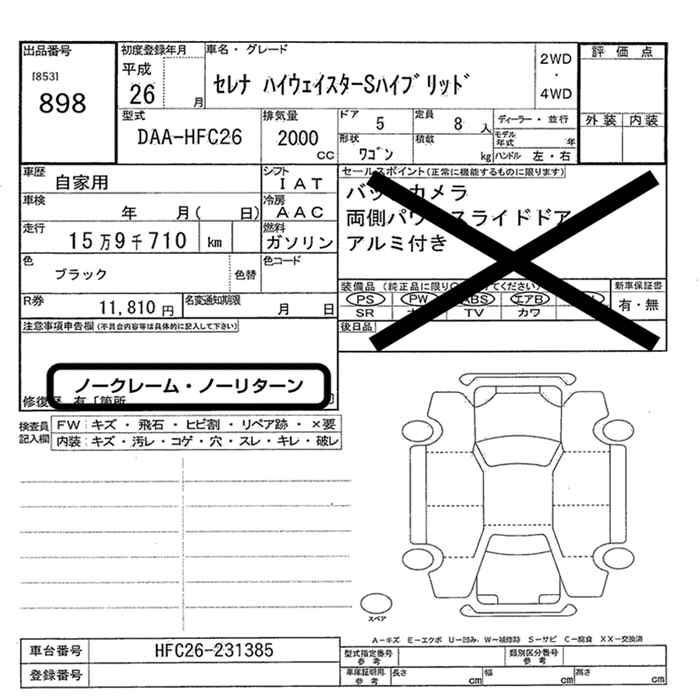 出品番号
[853]
898
初度登録年月
平成
26 月
車名・グレード
セレナ ハイウェイスターSハイブリッド
2WD
・
4WD
評価点
外装 内装
型式
DAA-HFC26
排気量
2000
CC
ドア
5
定員
8 人
形状
ワゴン
積数
kg
ディーラー・並行
モデル年式 年
ハンドル 左・右
車歴
自家用
シフト
IAT
車検
年 月( 日)
冷房
AAC
走行
15万9千710 km
燃料
ガソリン
色
ブラック
色替
色コード
R券
11,810 円
名変通知期限
月 日
セールスポイント(正常に機能するものに限ります)
カメラ
両側パワ スライドドア
アルミ付き
装備品(純正品に限り ください)
PS PW ABS エアB
SR TV カワ
新車保証書
有・無
後日品
注意事項申告欄(不具合内容等は具体的に記入して下さい)
ノークレーム・ノーリターン
検査員
記入欄
FW キズ・飛石・ヒビ割・リペア跡・×要
内装 キズ・汚レ・コゲ・穴・スレ・キレ・破レ
スペア
A−キズ E−エクボ U−凹み、W−補修跡 S−サビ C−腐食 XX−交換済
車台番号
HFC26-231385
登録番号
型式指定番号
参考
類別区分番号
参考
車庫証明用
参考
長さ cm
幅 cm
高さ cm